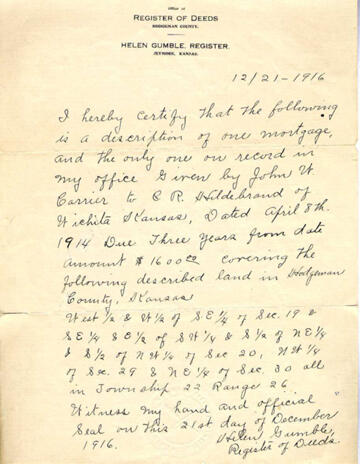 Office of
REGISTER OF DEEDS
HODGEMAN COUNTY.
HELEN GUMBLE, REGISTER.
JETMORE, KANSAS.
12/21-1916
I hereby certify that the following
is a description of one mortgage,
and the only one on record in
my office Given by John W
Carrier to C R. Hildebrand of
Wichita Kansas, Dated April 8th.
1914 Due Three Years from date
Amount $1600 00 covering the
following described land in Hodgeman
County, Kansas
West 1/2 & W 1/2 of S E 1/4 of Sec. 19 &
S E 1/4 of S W 1/4 & S 1/2 of N E 1/4
& S 1/2 of N W 1/4 of Sec 20, N W 1/4
of Sec. 29 & N E 1/4 of Sec. 30 all
in Township 22 Range 26
Witness my hand and official
Seal on this 21st day of December
1916.
Helen Gumble,
Register of Deeds.